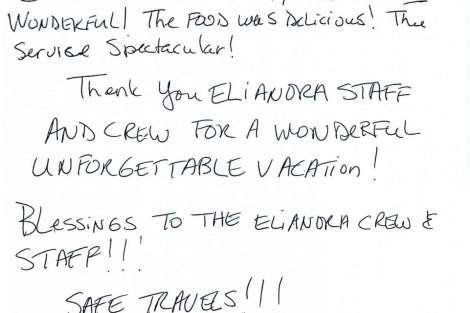 WONDERFUL! THE FOOD WAS DELICIOUS! THE
SERVICE SPECTACULAR!
Thank you ELIANORA STAFF
AND CREW FOR A WONDERFUL
UNFORGETTABLE VACATION!
BLESSINGS TO THE ELIANORA CREW &
STAFF!!!
SAFE TRAVELS!!!